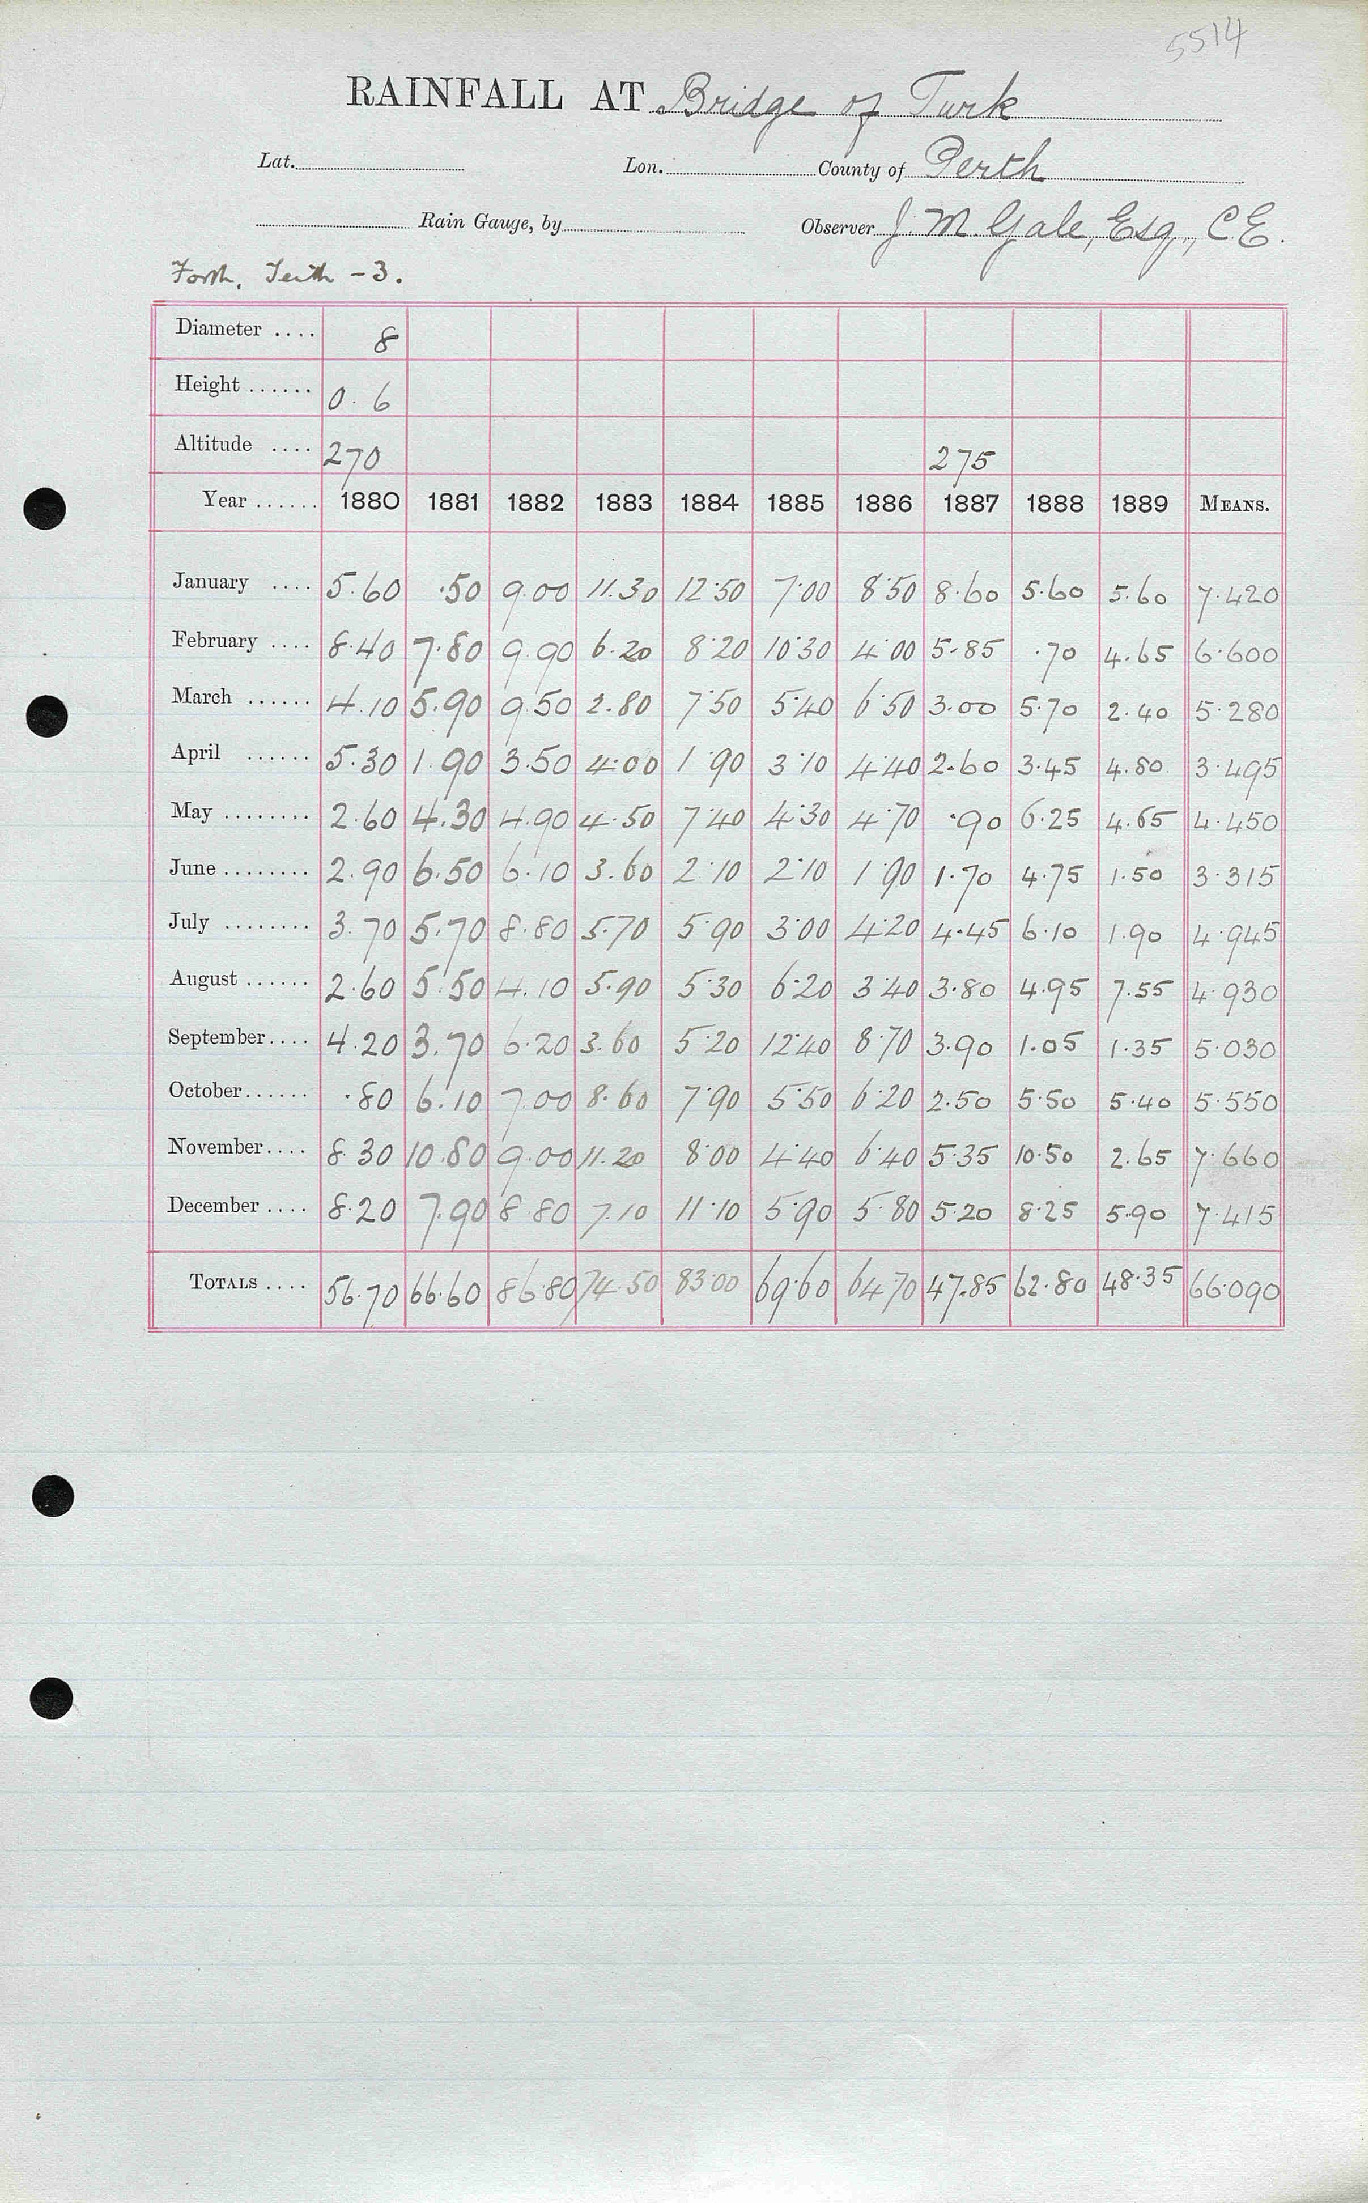 5514
RAINFALL AT Bridge of Turk
Lat. Lon. County of Perth
Rain Gauge, by Observer J. M. Gale, Esq., C.E.
Forth, Teith - 3.
Diameter .... 8
Height ...... 0.6
Altitude .... 270 275
Year ...... 1880 1881 1882 1883 1884 1885 1886 1887 1888 1889 MEANS.
January .... 5.60 .50 9.00 11.30 12.50 7.00 8.50 8.60 5.60 5.60 7.420
February .... 8.40 7.80 9.90 6.20 8.20 10.30 4.00 5.85 .70 4.65 6.600
March ...... 4.10 5.90 9.50 2.80 7.50 5.40 6.50 3.00 5.70 2.40 5.280
April ...... 5.30 1.90 3.50 4.00 1.90 3.10 4.40 2.60 3.45 4.80 3.495
May ........ 2.60 4.30 4.90 4.50 7.40 4.30 4.70 .90 6.25 4.65 4.450
June ........ 2.90 6.50 6.10 3.60 2.10 2.10 1.90 1.70 4.75 1.50 3.315
July ........ 3.70 5.70 8.80 5.70 5.90 3.00 4.20 4.45 6.10 1.90 4.945
August ...... 2.60 5.50 4.10 5.90 5.30 6.20 3.40 3.80 4.95 7.55 4.930
September.... 4.20 3.70 6.20 3.60 5.20 12.40 8.70 3.90 1.05 1.35 5.030
October...... .80 6.10 7.00 8.60 7.90 5.50 6.20 2.50 5.50 5.40 5.550
November.... 8.30 10.80 9.00 11.20 8.00 4.40 6.40 5.35 10.50 2.65 7.660
December .... 8.20 7.90 8.80 7.10 11.10 5.90 5.80 5.20 8.25 5.90 7.415
TOTALS .... 56.70 66.60 86.80 74.50 83.00 69.60 64.70 47.85 62.80 48.35 66.090